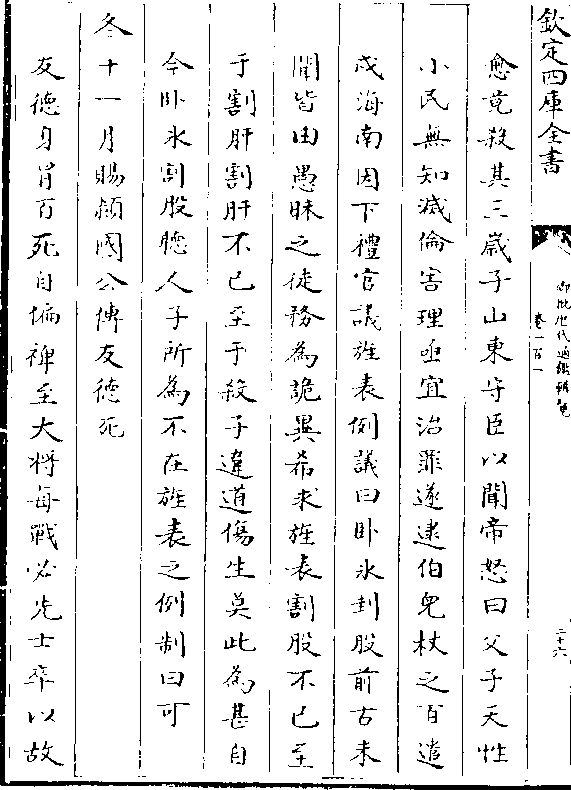 欽定四庫全書
御批歷代通鑑輯覽
卷一百一
二十六
愈竟殺其三歲子山東守臣以聞帝怒曰父子天性
小民無知滅倫害理亟宜治罪遂逮伯兒杖之百遣
戍海南因下禮官議旌表例議曰卧氷刲股前古未
聞皆由愚昧之徒務為詭異希求旌表割股不已至
于割肝割肝不已至于殺子違道傷生莫此為甚自
今卧氷割股聽人子所為不在旌表之例制曰可
冬十一月賜潁國公傅友德死
友德身冒百死自偏裨至大將每戰必先士卒以故